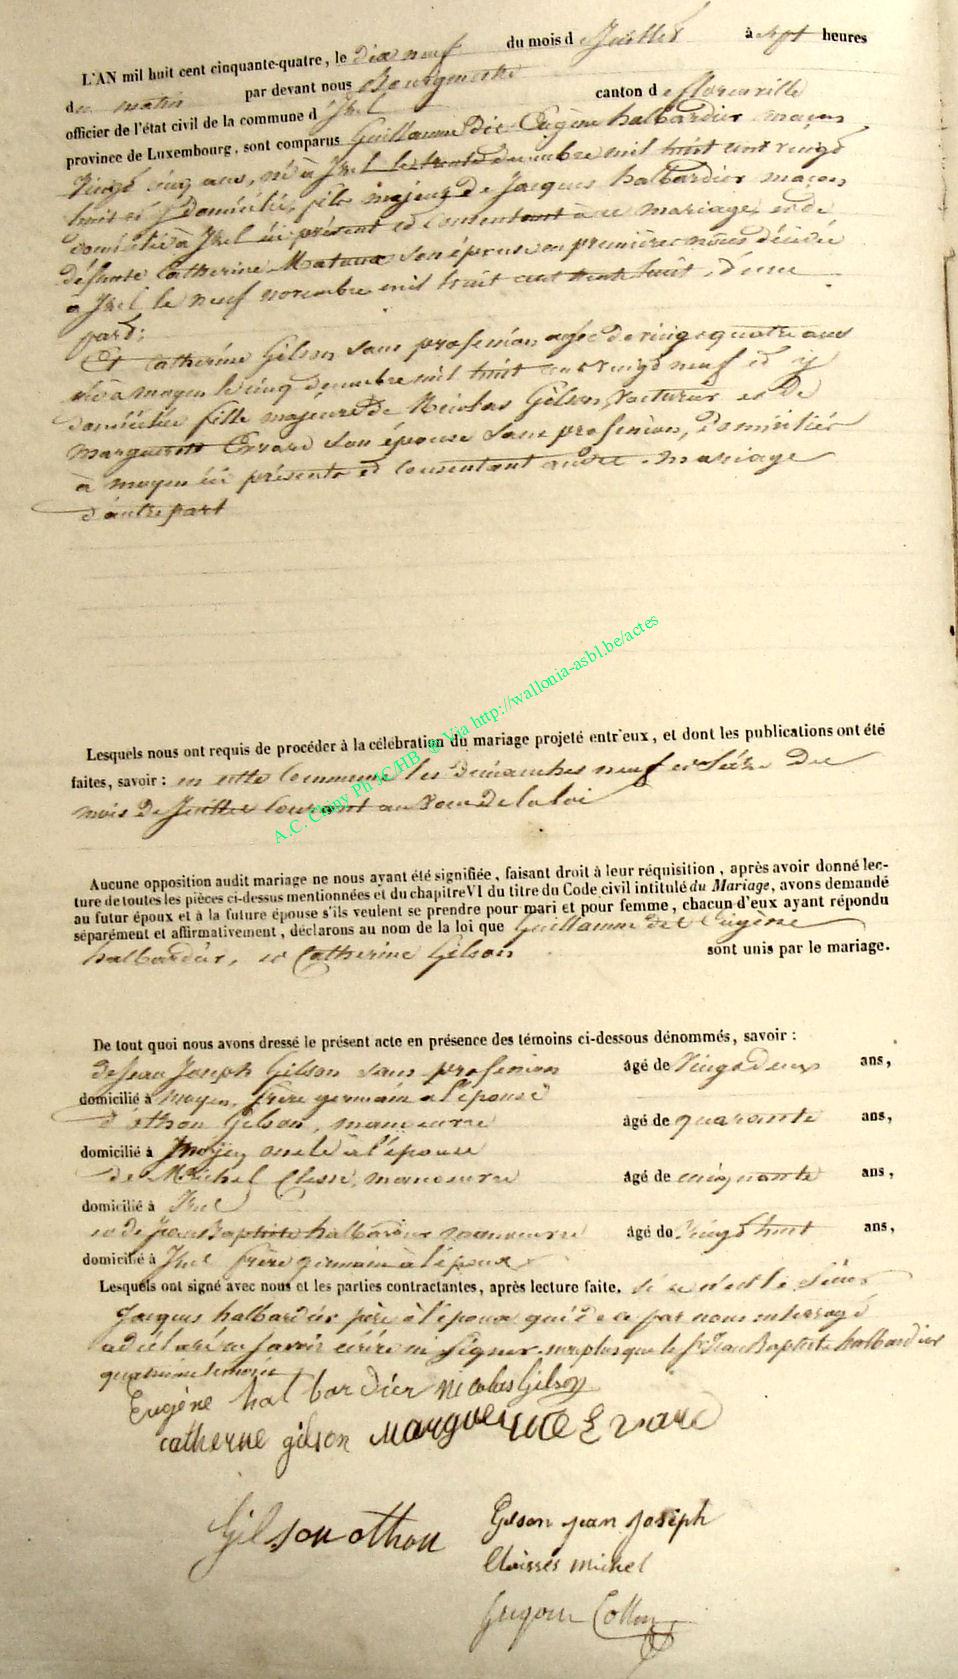 L'AN mil huit cent cinquante-quatre, le dix neuf du mois d e Juillet à sept heures
du matin par devant nous Bourgmestre
officier de l'état civil de la commune d'Izel canton d e florenville
province de Luxembourg, sont comparus Guillaume dit Eugène halbardier maçon
vingt cinq ans, né à Izel le trente decembre mil huit cent vingt
huit et y domicilié, fils majeur de Jacques halbardier maçon
domicilié à Izel ici présent et consentant à ce mariage, et de
défunte Catherine son épouse en premières noces décédée
a Izel le neuf novembre mil huit cent trente huit, d'une
part;
Et Catherine Gilson sans profession agée de vingt quatre ans
née à moyen le cinq decembre mil huit cent vingt neuf et y
domiciliée fille majeure de Nicolas Gilson, voiturier et de
marguerite Evrard son épouse sans profession, domiciliés
à moyen ici présents et consentant audit mariage
d'autre part
Lesquels nous ont requis de procéder à la célébration du mariage projeté entr'eux, et dont les publications ont été
faites, savoir : en cette Commune les dimanches neuf et seize du
mois de Juillet courant au vœu de la loi
A.C. Chiny Ph JC/HB ® Via http://wallonia-asbl.be/actes
Aucune opposition audit mariage ne nous ayant été signifiée, faisant droit à leur réquisition, après avoir donné lec-
ture de toutes les pièces ci-dessus mentionnées et du chapitre VI du titre du Code civil intitulé du Mariage, avons demandé
au futur époux et à la future épouse s'ils veulent se prendre pour mari et pour femme, chacun d'eux ayant répondu
séparément et affirmativement, déclarons au nom de la loi que Guillaume dit Eugène
halbardier, et Catherine Gilson sont unis par le mariage.
De tout quoi nous avons dressé le présent acte en présence des témoins ci-dessous dénommés, savoir :
de Jean Joseph Gilson sans profession âgé de vingt deux ans,
domicilié à moyen, frère germain a l'épouse
d'othon Gilson, manœuvre âgé de quarante ans,
domicilié à moyen oncle à l'épouse
de Michel Clesse, manœuvre âgé de cinquante ans,
domicilié à Izel
et de Jean Baptiste halbardier manœuvre âgé de vingt huit ans,
domicilié à Izel frère germain à l'époux
Lesquels ont signé avec nous et les parties contractantes, après lecture faite, si ce n'est le sieur
Jacques halbardier père à l'époux qui de ce par nous interrogé
a déclaré ne savoir écrire ni signer plus que le Sr Jean Baptiste halbardier
quatrième témoin
Eugène halbardier Nicolas Gilson
catherine gilson Marguerite Evrard
Gilson othon Gilson jean joseph
Claisses michel